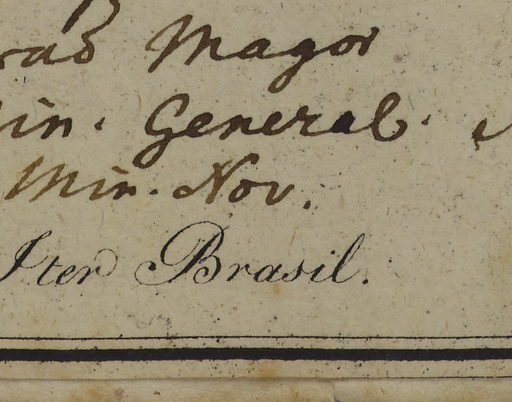 Magor
in. General.
Min. Nov.
Iter Brasil.